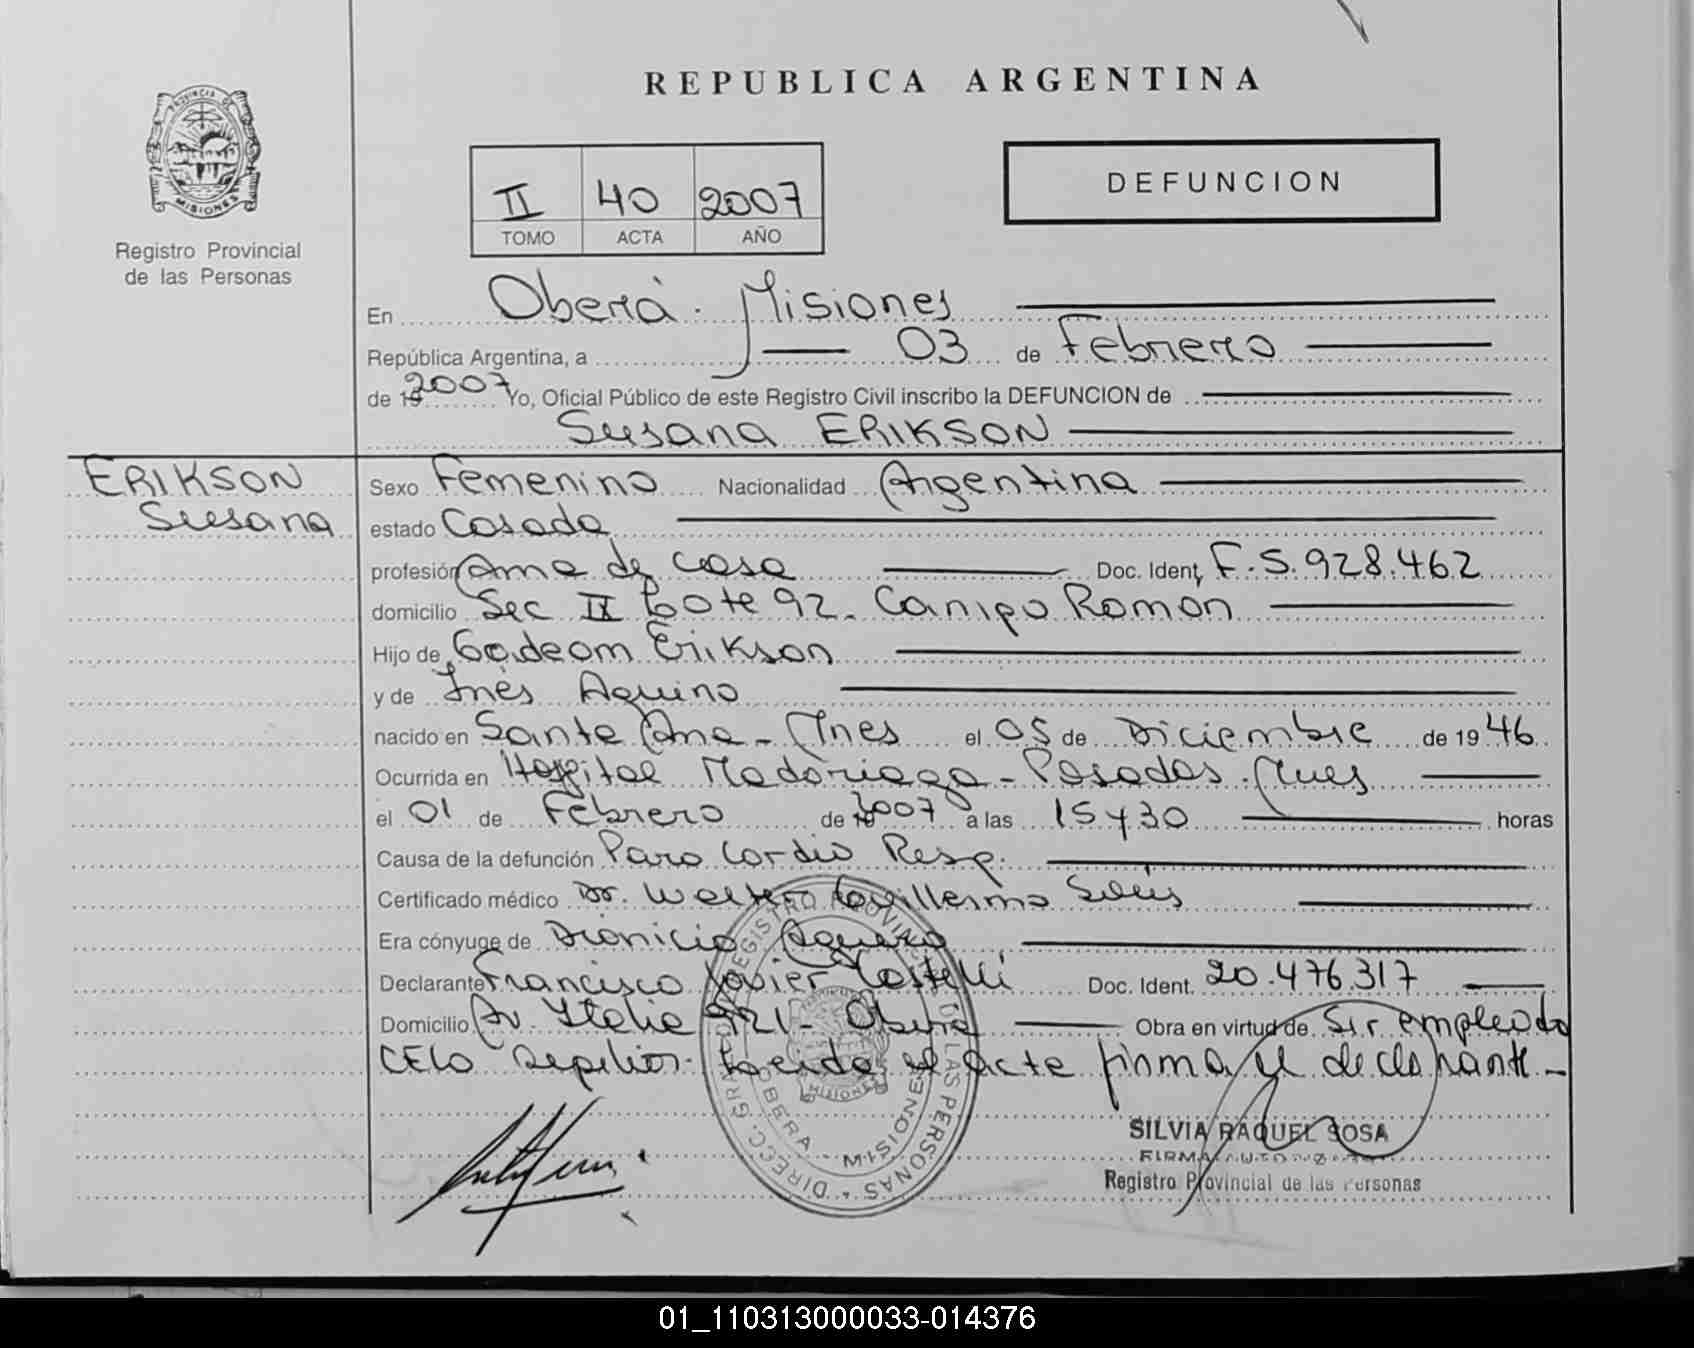 REPUBLICA ARGENTINA
PROVINCIA DE
MISIONES
Registro Provincial
de las Personas
II 40 2007
TOMO ACTA AÑO
DEFUNCION
En Oberá. Misiones
República Argentina, a 03 de Febrero
de 19 2007 Yo, Oficial Público de este Registro Civil inscribo la DEFUNCION de
Susana ERIKSON
ERIKSON
Susana
Sexo Femenino Nacionalidad Argentina
estado Casada
profesión Ama de casa Doc. Ident. F.5.928.462
domicilio Sec II Lote 92. Campo Ramón
Hijo de Erikson
y de Inés Aquino
nacido en Santa Ana - Mnes el 05 de Diciembre de 1946
Ocurrida en Hospital Madariaga - Posadas. Mnes
el 01 de Febrero de 2007 a las 15 y 30 horas
Causa de la defunción Paro Cardio Resp.
Certificado médico Dr. Walter Guillermo Solís
Era cónyuge de Dionicio Aguero
Declarante Francisco Javier Castelli Doc. Ident. 20.476.317
Domicilio Av. Italia 921 - Oberá Obra en virtud de Sir empleado
CELO Sepelios. Leida el acta firma el declarante. -
DIRECC. GRAL. REGISTRO PROVINCIAL DE LAS PERSONAS
OBERA - MISIONES
SILVIA RAQUEL SOSA
FIRMA AUTORIZADA
Registro Provincial de las Personas
01_110313000033-014376